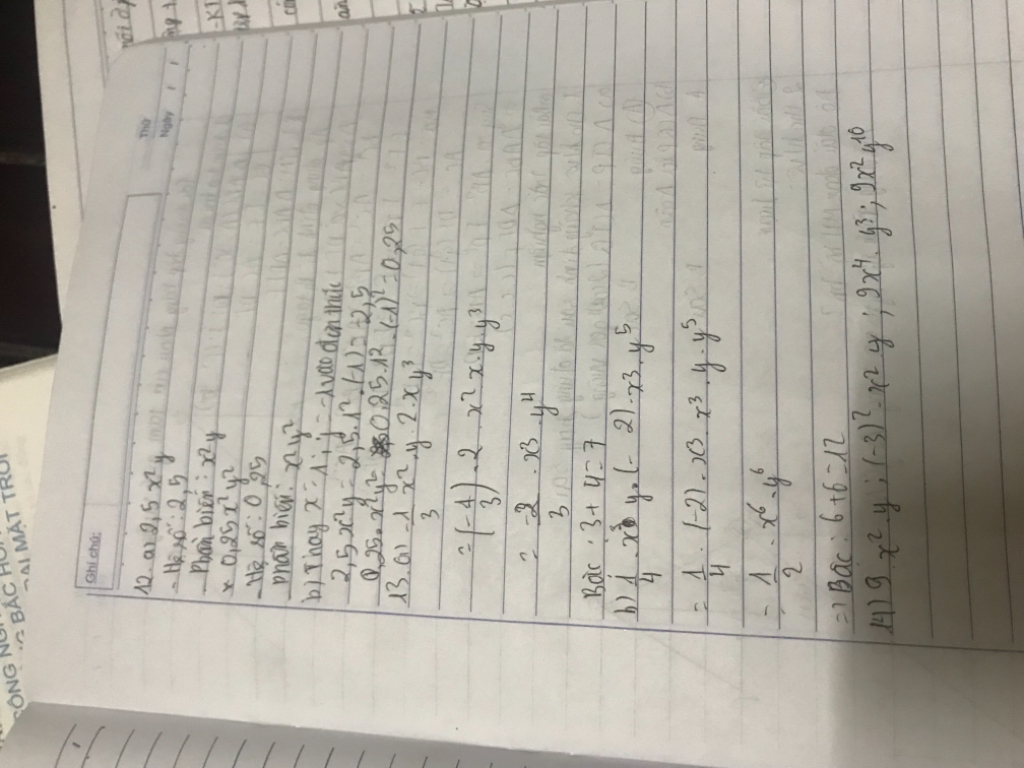 Ghi chú:
Thứ
Ngày
12. a. 2,5 x²y
- Hệ số: 2,5
Phần biến: x²y
* 0,25x²y²
- Hệ số: 0,25
phần biến: x²y²
b) Thay x = 1; y = -1 vào đơn thức
2,5.x²y = 2,5.1².(-1) = -2,5
0,25.x²y² = 0,25.1².(-1)² = 0,25
13. a) -1/3 x².y.2xy³
= (-1/3).2.x².x.y.y³
= -2/3.x³.y⁴
Bậc: 3 + 4 = 7
b) 1/4.x³.y.(-2).x³.y⁵
= 1/4.(-2).x³.x³.y.y⁵
= -1/2.x⁶.y⁶
=> Bậc: 6+6=12
14) 9.x².y; (-3)².x².y; 9x⁴.y³; 9x²y¹⁰